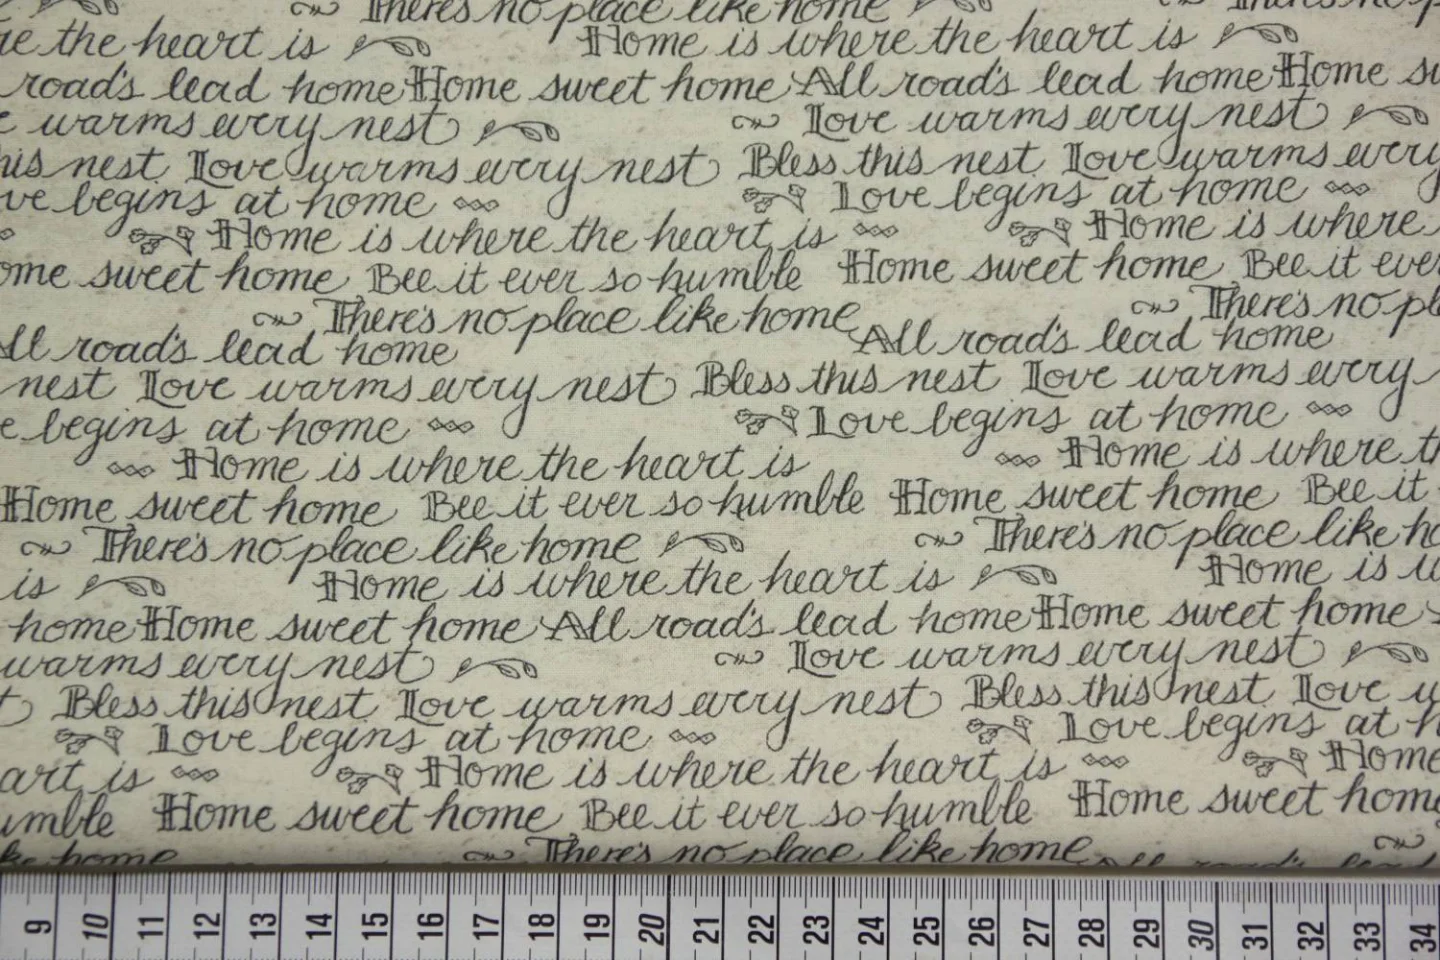 There's no place like home There's no p
re the heart is Home is where the heart is
road's lead home Home sweet home All road's lead home Home sw
e warms every nest Love warms every nest
his nest Love warms every nest Bless this nest Love warms every
ve begins at home Love begins at home
Home is where the heart is Home is where
ome sweet home Bee it ever so humble Home sweet home Bee it ever
There's no place like home There's no pl
All road's lead home All road's lead home
nest Love warms every nest Bless this nest Love warms every
e begins at home Love begins at home
Home is where the heart is Home is where th
Home sweet home Bee it ever so humble Home sweet home Bee it
There's no place like home There's no place like ho
is Home is where the heart is Home is w
home Home sweet home All road's lead home Home sweet home
warms every nest Love warms every nest
t Bless this nest Love warms every nest Bless this nest Love w
Love begins at home Love begins at h
art is Home is where the heart is Home
umble Home sweet home Bee it ever so humble Home sweet home
ke home There's no place like home All road's lead
9 10 11 12 13 14 15 16 17 18 19 20 21 22 23 24 25 26 27 28 29 30 31 32 33 34